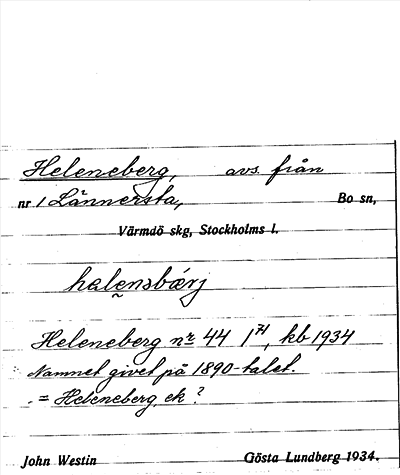 Heleneberg, avs. från
nr 1 Lännersta, Bo sn,
Värmdö skg, Stockholms l.
Heleneberg nr 44 1 71, kb 1934
Namnet givet på 1890-talet.
= Heleneberg, ek?
John Westin Gösta Lundberg 1934.